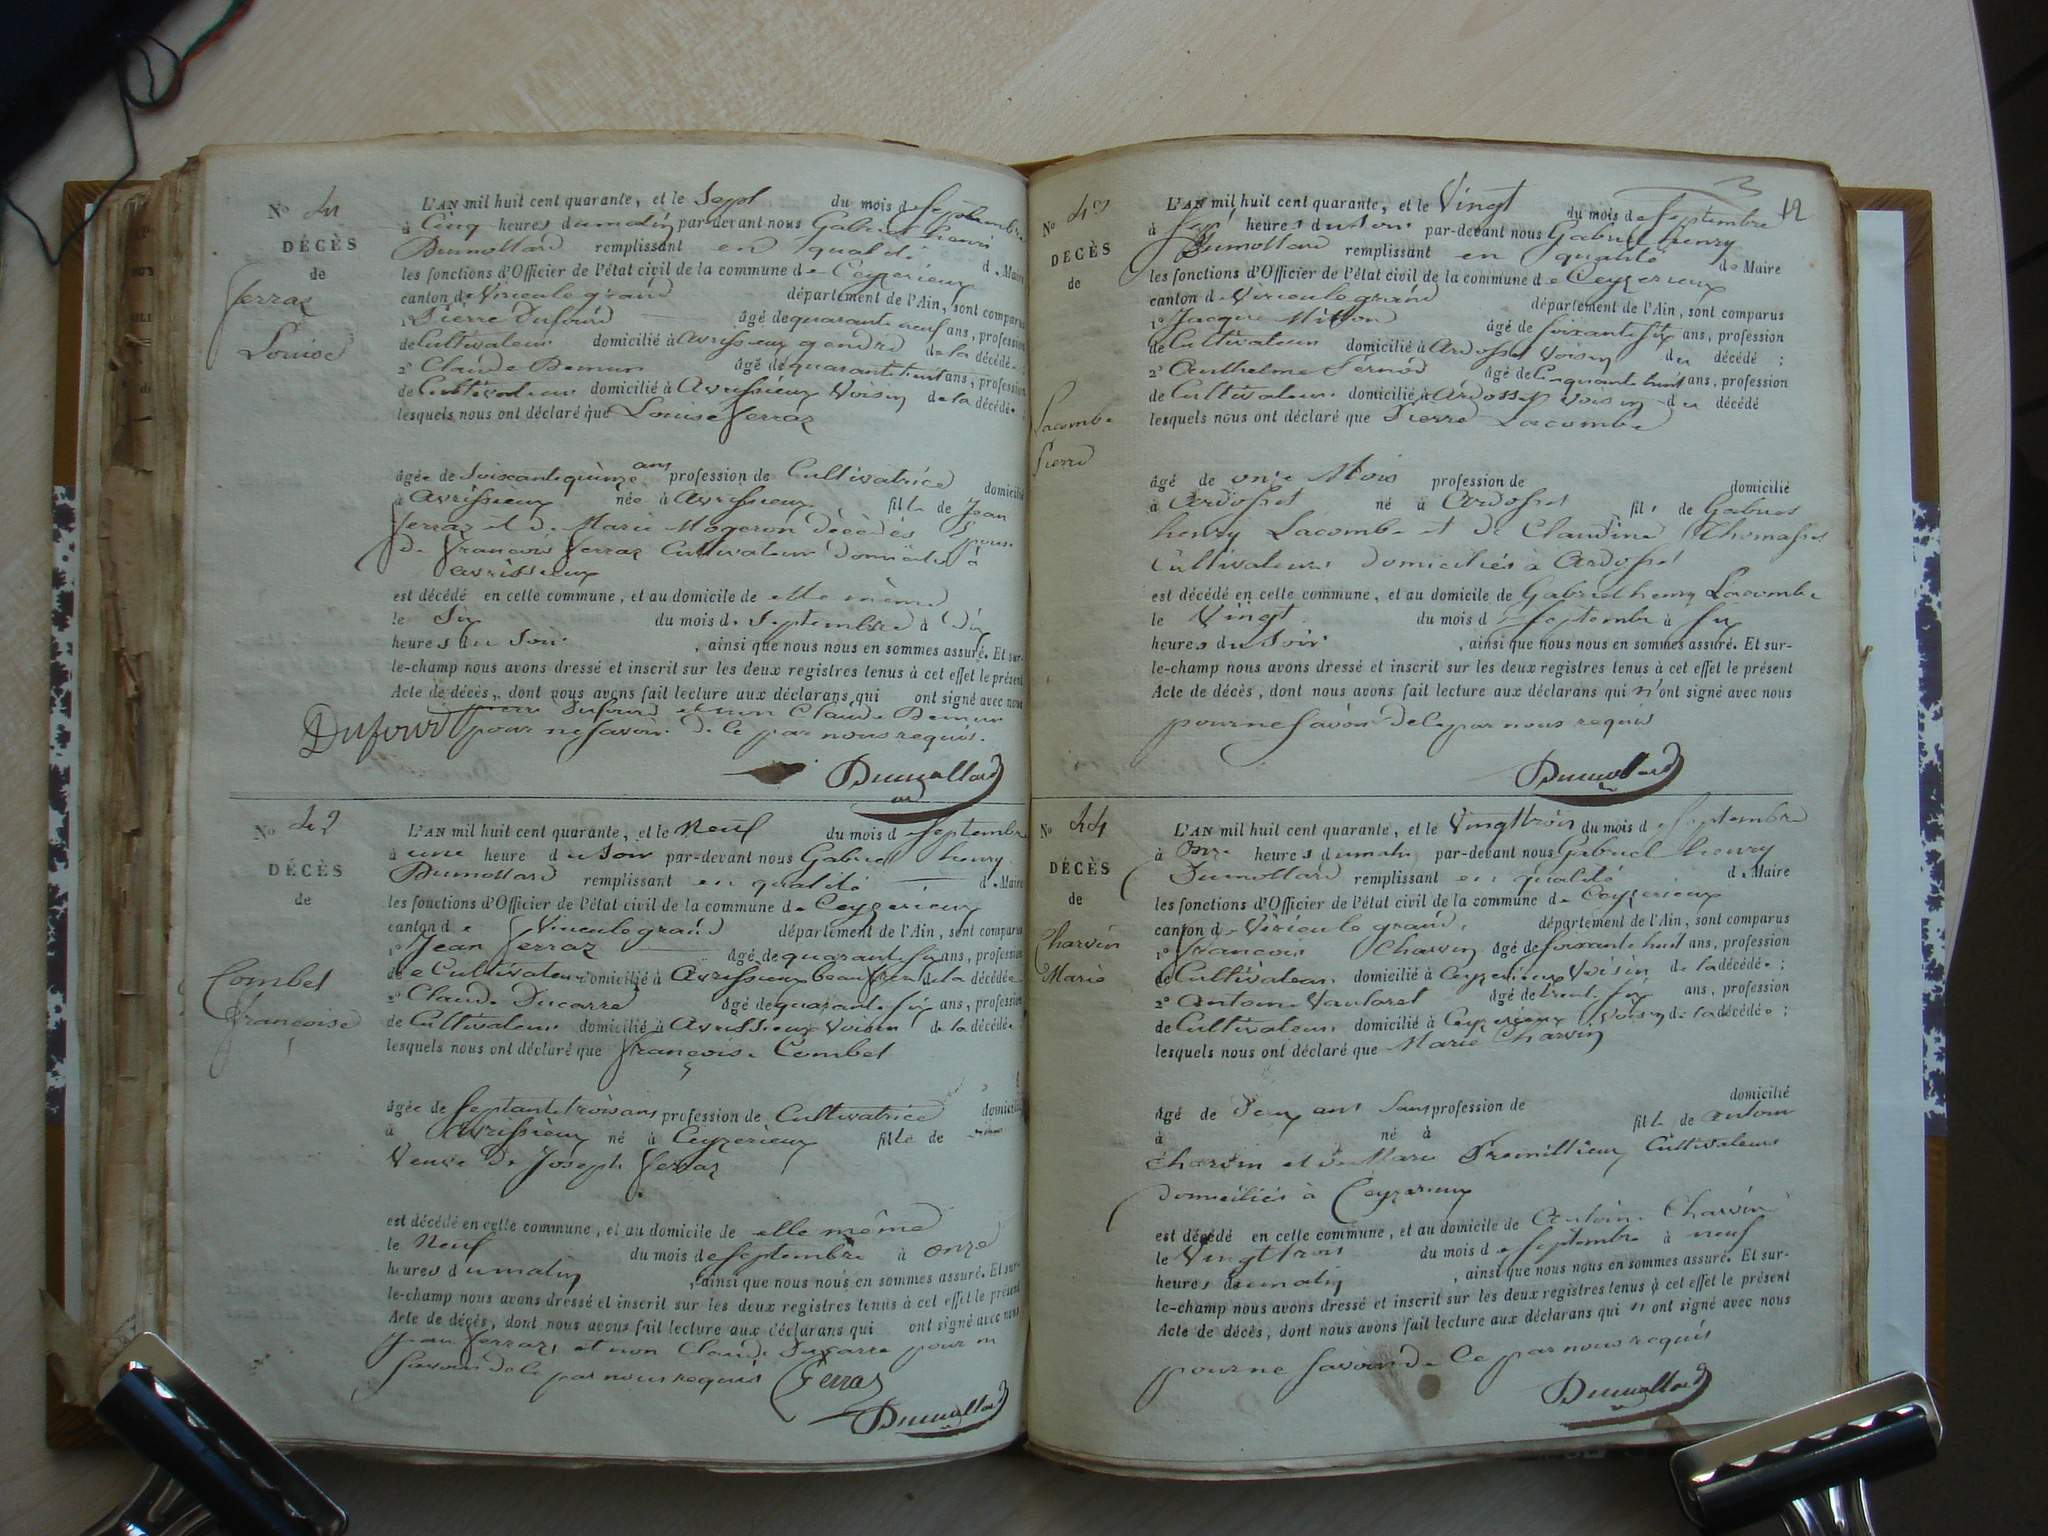 N° 41
DÉCÈS
de
Ferraz
Louise
L'AN mil huit cent quarante, et le Sept du mois de Septembre
à Cinq heures du matin par-devant nous Gabriel henri
Dumollard remplissant en qualité de Maire
les fonctions d'Officier de l'état civil de la commune de Ceyzerieux
canton de Virieu le grand département de l'Ain, sont comparus
1° Pierre Dufourd âgé de quarante neuf ans, profession
de Cultivateur domicilié à avrissieux gendre de la décédée ;
2° Claude Demur âgé de quarante huit ans, profession
de Cultivateur domicilié à Avrissieux Voisin de la décédée ;
lesquels nous ont déclaré que Louise Ferraz
âgée de Soixante quinze ans profession de Cultivatrice domicilié
à Avrissieux née à Avrissieux fille de Jean
Ferraz et de Marie Mogeron décédés Epouse
de François Ferraz Cultivateur domicilié à
avrissieux
est décédé en cette commune, et au domicile de elle même
le Six du mois de Septembre à Dix
heures du Soir , ainsi que nous nous en sommes assuré. Et sur-
le-champ nous avons dressé et inscrit sur les deux registres tenus à cet effet le présent
Acte de décès, dont nous avons fait lecture aux déclarans qui ont signé avec nous
pierre Dufourd et non Claude Demur
Dufourd pour ne savoir de ce par nous requis.
Dumollard
N° 42
DÉCÈS
de
Combet
Françoise
L'AN mil huit cent quarante, et le Neuf du mois de Septembre
à une heure du Soir par-devant nous Gabriel henry
Dumollard remplissant en qualité de Maire
les fonctions d'Officier de l'état civil de la commune de Ceyzerieux
canton de Virieu le grand département de l'Ain, sont comparus
1° Jean Ferraz âgé de quarante six ans, profession
de Cultivateur domicilié à Avrissieux beau frere de la décédée ;
2° Claude Ducarre âgé de quarante six ans, profession
de Cultivateur domicilié à Avrissieux Voisin de la décédée
lesquels nous ont déclaré que françoise Combet
âgée de Septante trois ans profession de Cultivatrice domicilié
à Avrissieux né à Ceyzerieux fille de
Veuve de Joseph Ferraz
est décédé en cette commune, et au domicile de elle même
le Neuf du mois de Septembre à onze
heures du matin , ainsi que nous nous en sommes assuré. Et sur-
le-champ nous avons dressé et inscrit sur les deux registres tenus à cet effet le présent
Acte de décès, dont nous avons fait lecture aux déclarans qui ont signé avec nous
Jean Ferraz, et non Claude Ducarre pour ne
Savoir de ce par nous requis Ferraz
Dumollard
12
N° 43
DÉCÈS
de
Lacombe
Pierre
L'AN mil huit cent quarante, et le Vingt du mois de Septembre
à Sept heures du Soir par-devant nous Gabriel henry
Dumollard remplissant en qualité de Maire
les fonctions d'Officier de l'état civil de la commune de Ceyzerieux
canton de Virieu le grand département de l'Ain, sont comparus
1° Jacque Mitton âgé de Soixante six ans, profession
de Cultivateur domicilié à Ardosset Voisin du décédé ;
2° Anthelme Pernod âgé de Cinquante huit ans, profession
de Cultivateur domicilié à Ardosset Voisin du décédé
lesquels nous ont déclaré que Pierre Lacombe
âgé de onze Mois profession de domicilié
à Ardosset né à Ardosset fils de Gabriel
henry Lacombe et de Claudine Thomasset
Cultivateurs domiciliés à Ardosset
est décédé en cette commune, et au domicile de Gabriel henry Lacombe
le Vingt du mois de Septembre à Six
heures du Soir , ainsi que nous nous en sommes assuré. Et sur-
le-champ nous avons dressé et inscrit sur les deux registres tenus à cet effet le présent
Acte de décès, dont nous avons fait lecture aux déclarans qui n'ont signé avec nous
pour ne Savoir de ce par nous requis
Dumollard
N° 44
DÉCÈS
de
Charvin
Marie
L'AN mil huit cent quarante, et le Vingt trois du mois de Septembre
à Onze heures du matin par-devant nous Gabriel henry
Dumollard remplissant en qualité de Maire
les fonctions d'Officier de l'état civil de la commune de Ceyzerieux
canton de Virieu le grand, département de l'Ain, sont comparus
1° François Charvin âgé de Soixante huit ans, profession
de Cultivateur domicilié à Ceyzerieux Voisin de la décédée ;
2° Antoine Vauloret âgé de trente six ans, profession
de Cultivateur domicilié à Ceyzerieux Voisin de la décédée ;
lesquels nous ont déclaré que Marie Charvin
âgé de Deux ans Sans profession de domicilié
à né à fille de antoine
Charvin et de Marie Cultivateurs
domiciliés à Ceyzerieux
est décédé en cette commune, et au domicile de Antoine Charvin
le Vingt trois du mois de Septembre à neuf
heures du matin , ainsi que nous nous en sommes assuré. Et sur-
le-champ nous avons dressé et inscrit sur les deux registres tenus à cet effet le présent
Acte de décès, dont nous avons fait lecture aux déclarans qui n'ont signé avec nous
pour ne Savoir de Ce par nous requis
Dumollard